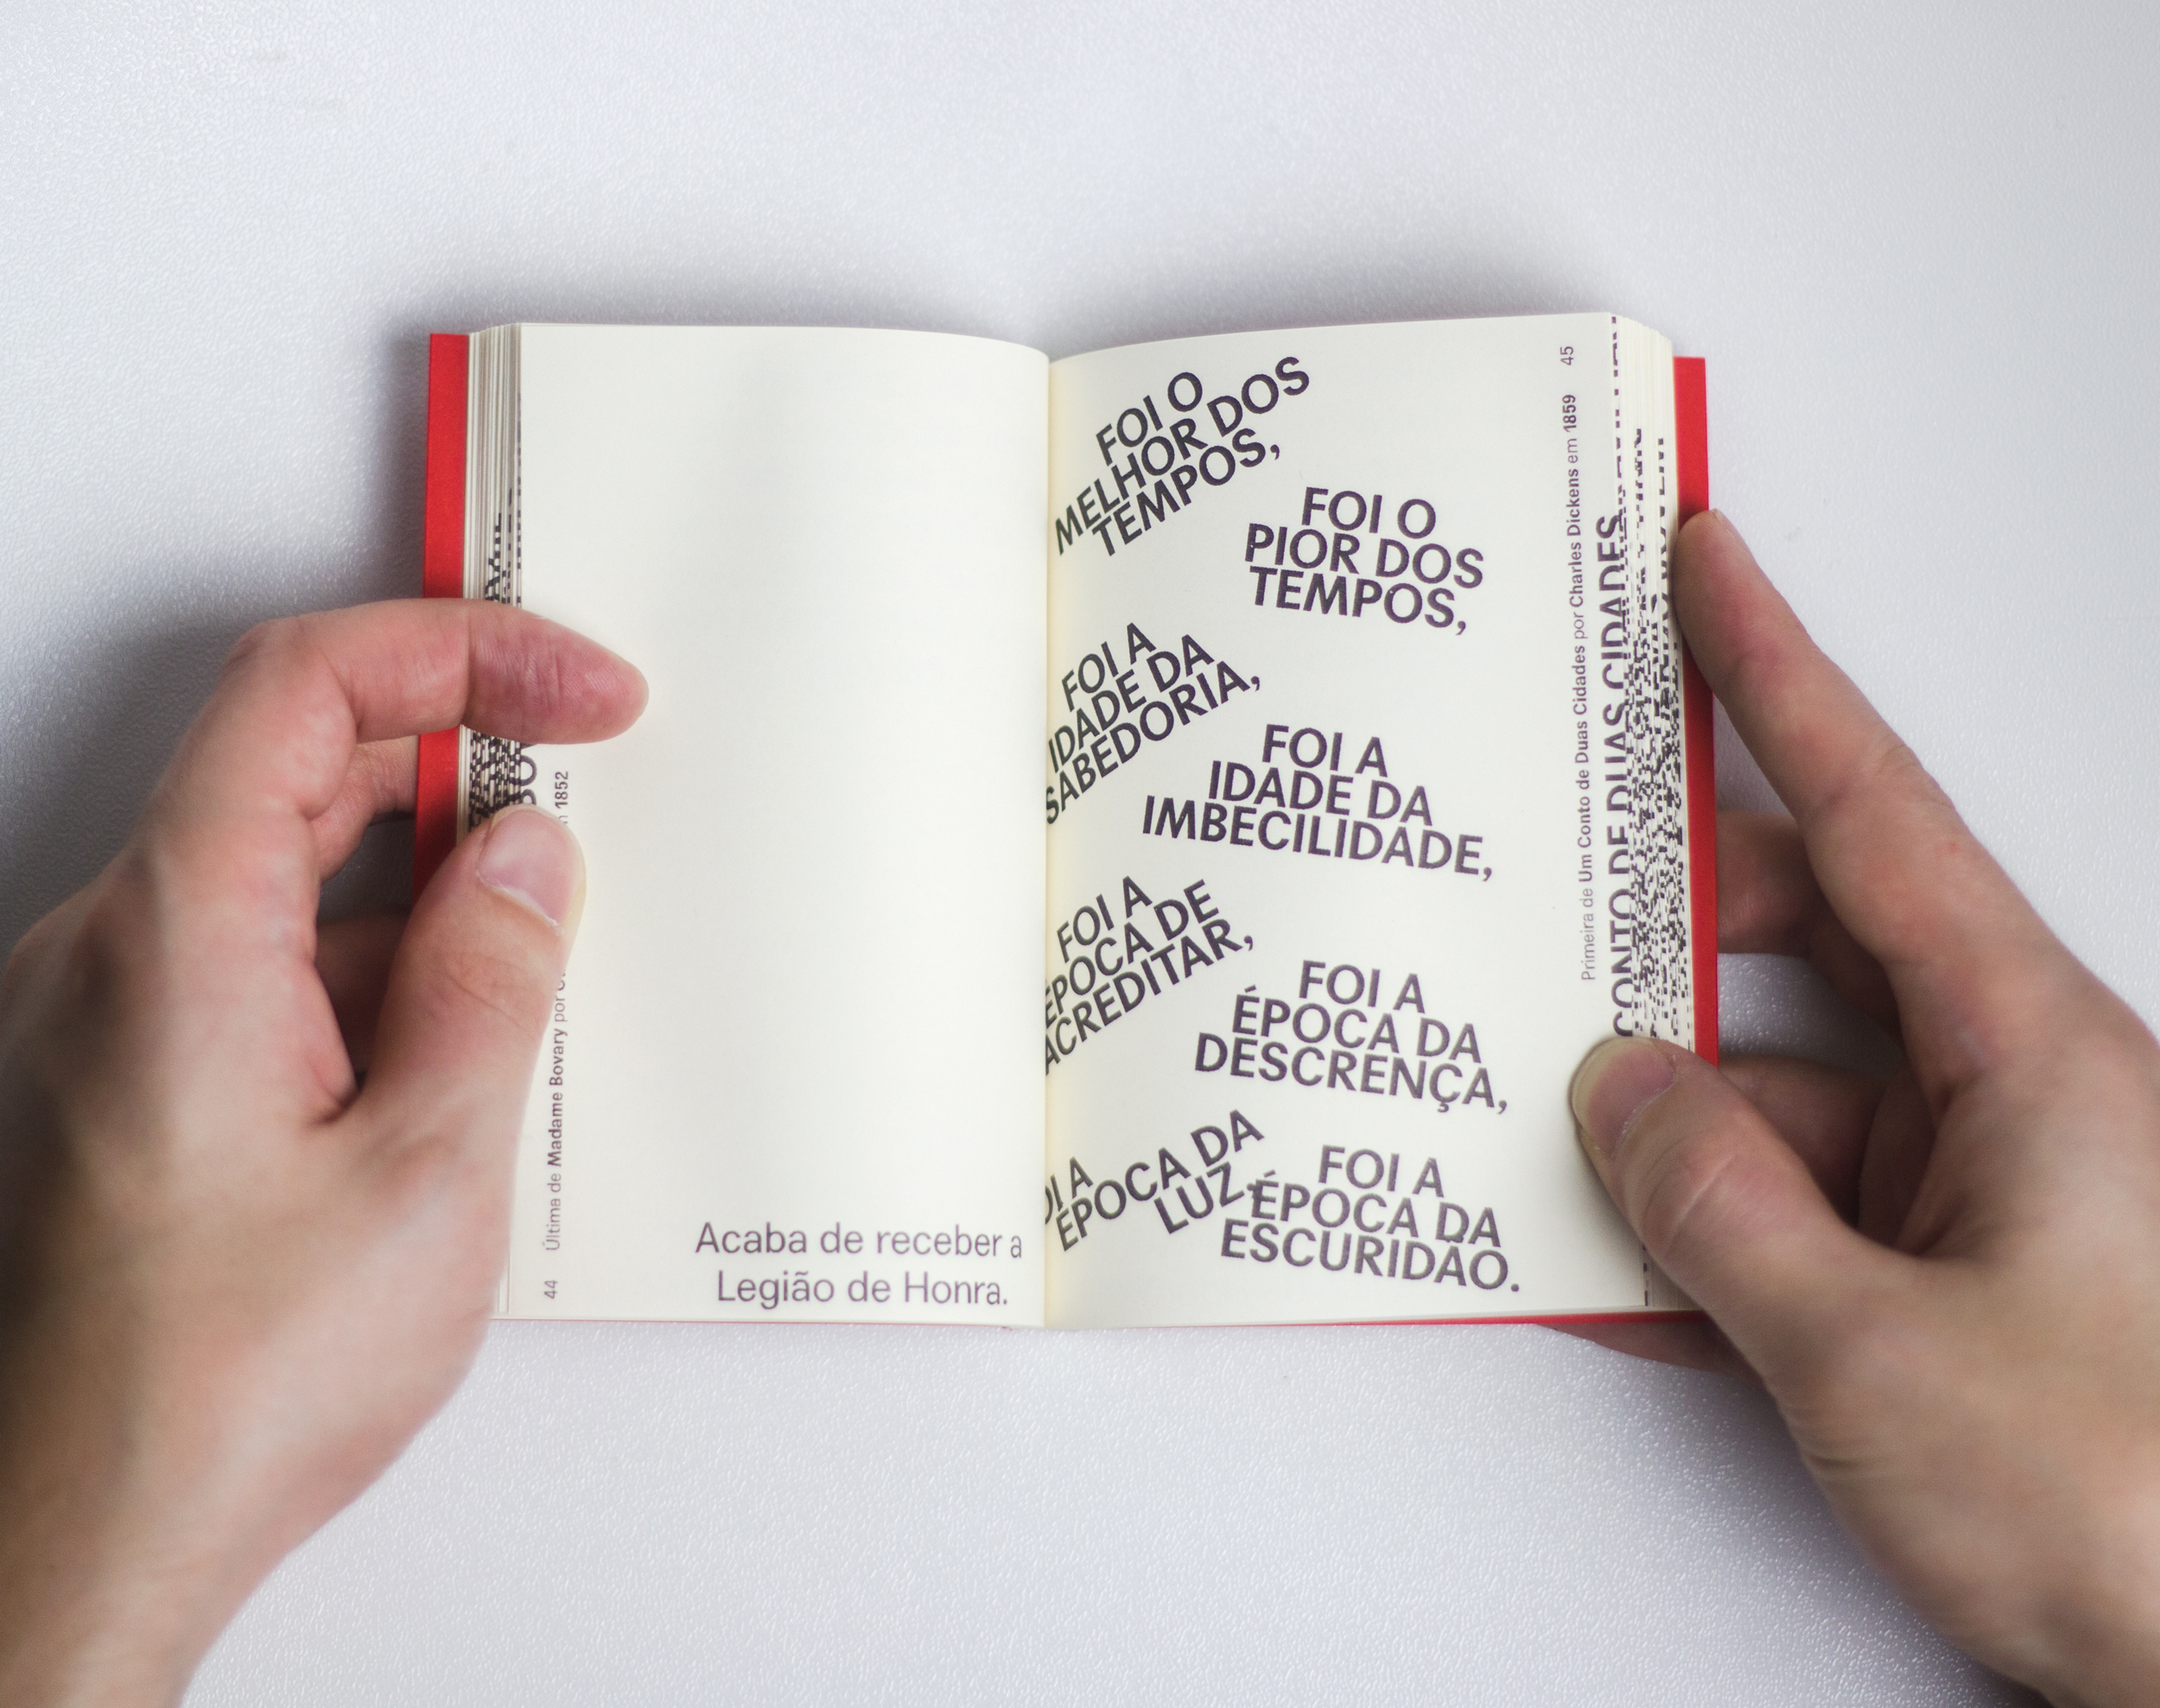 Acaba de receber a
Legião de Honra.
44 Última de Madame Bovary por
1852
FOI O
MELHOR DOS
TEMPOS,
FOI O
PIOR DOS
TEMPOS,
FOI A
IDADE DA
SABEDORIA,
FOI A
IDADE DA
IMBECILIDADE,
FOI A
ÉPOCA DE
ACREDITAR,
FOI A
ÉPOCA DA
DESCRENÇA,
FOI A
ÉPOCA DA
LUZ,
FOI A
ÉPOCA DA
ESCURIDÃO.
Primeira de Um Conto de Duas Cidades por Charles Dickens em 1859 45
CONTO DE DUAS CIDADES